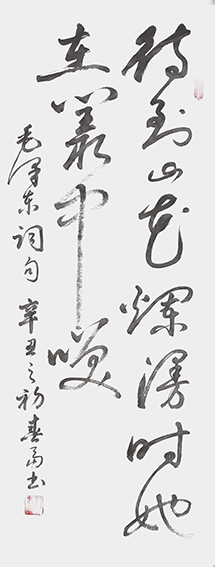 待到山花烂漫时她
在丛中笑
毛泽东词句 辛丑之初春 书